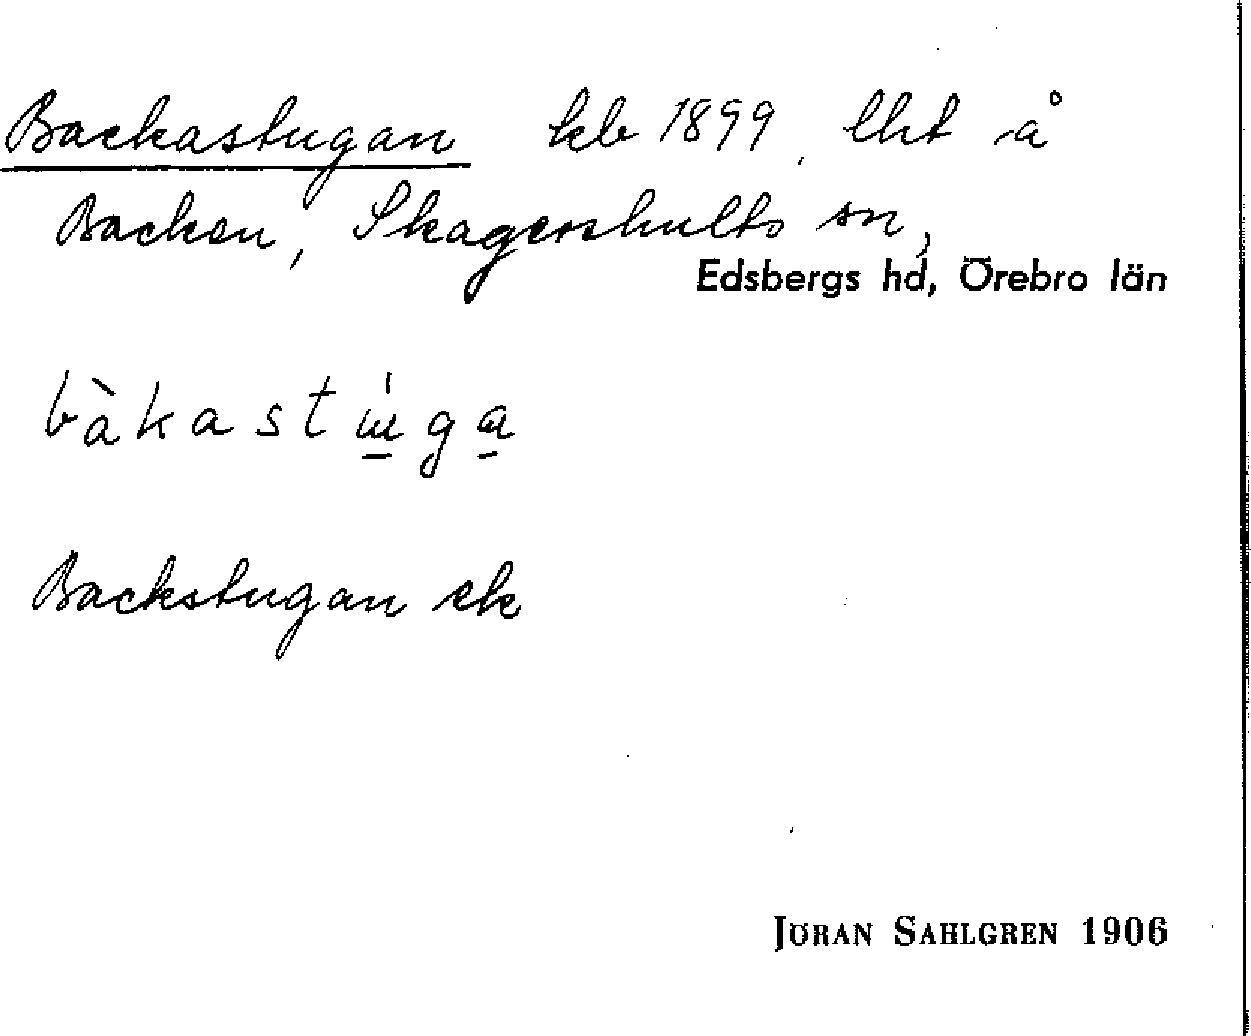 Backastugan kb 1899, lht å
Backen, Skagershults sn,
Edsbergs hd, Örebro län
bàkastɯ̱́ga̱
Backstugan ek
JÖRAN SAHLGREN 1906